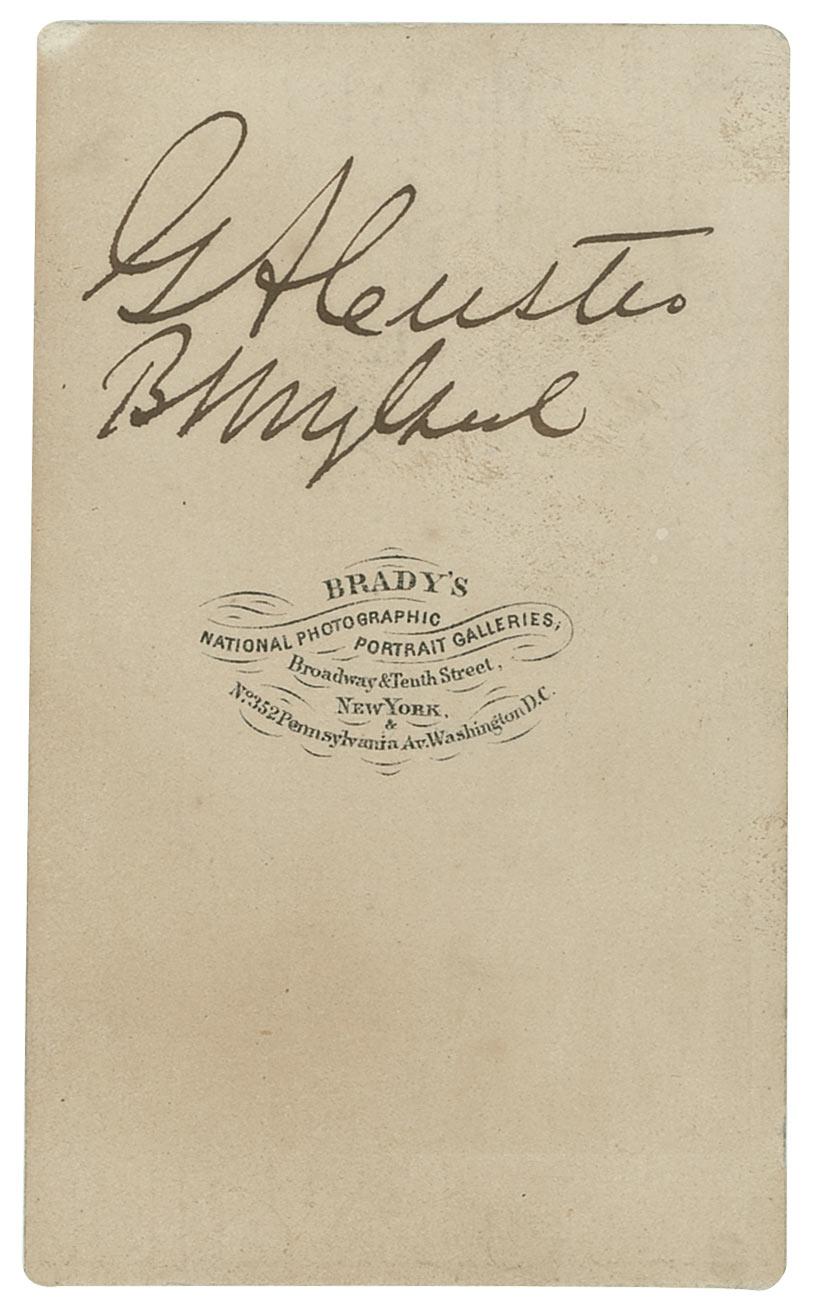 G A Custer
Brady's
National Photographic
Portrait Galleries,
Broadway & Tenth Street,
New York,
&
No. 352 Pennsylvania Av. Washington D.C.